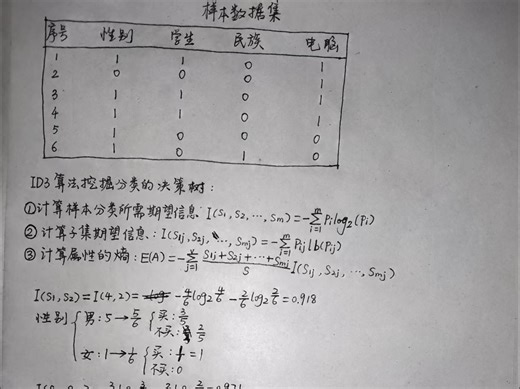 样本数据集
序号 性别 学生 民族 电脑
1 1 1 0 1
2 0 0 0 1
3 1 1 0 1
4 1 1 0 1
5 1 0 0 0
6 1 0 1 0
ID3算法挖掘分类的决策树:
①计算样本分类所需期望信息:I(S1,S2,…,Sm)=-∑(i=1..m)Pilog2(Pi)
②计算子集期望信息:I(S1j,S2j,…,Smj)=-∑(i=1..m)Pijlb(Pij)
③计算属性的熵:E(A)=-∑(j=1..v)(S1j+S2j+…+Smj)/S I(S1j,S2j,…,Smj)
I(S1,S2)=I(4,2)=-4/6log2 4/6-2/6log2 2/6=0.918
性别 男:5→5/6 买:3/5
不买:2/5
女:1→1/6 买:1=1
不买:0